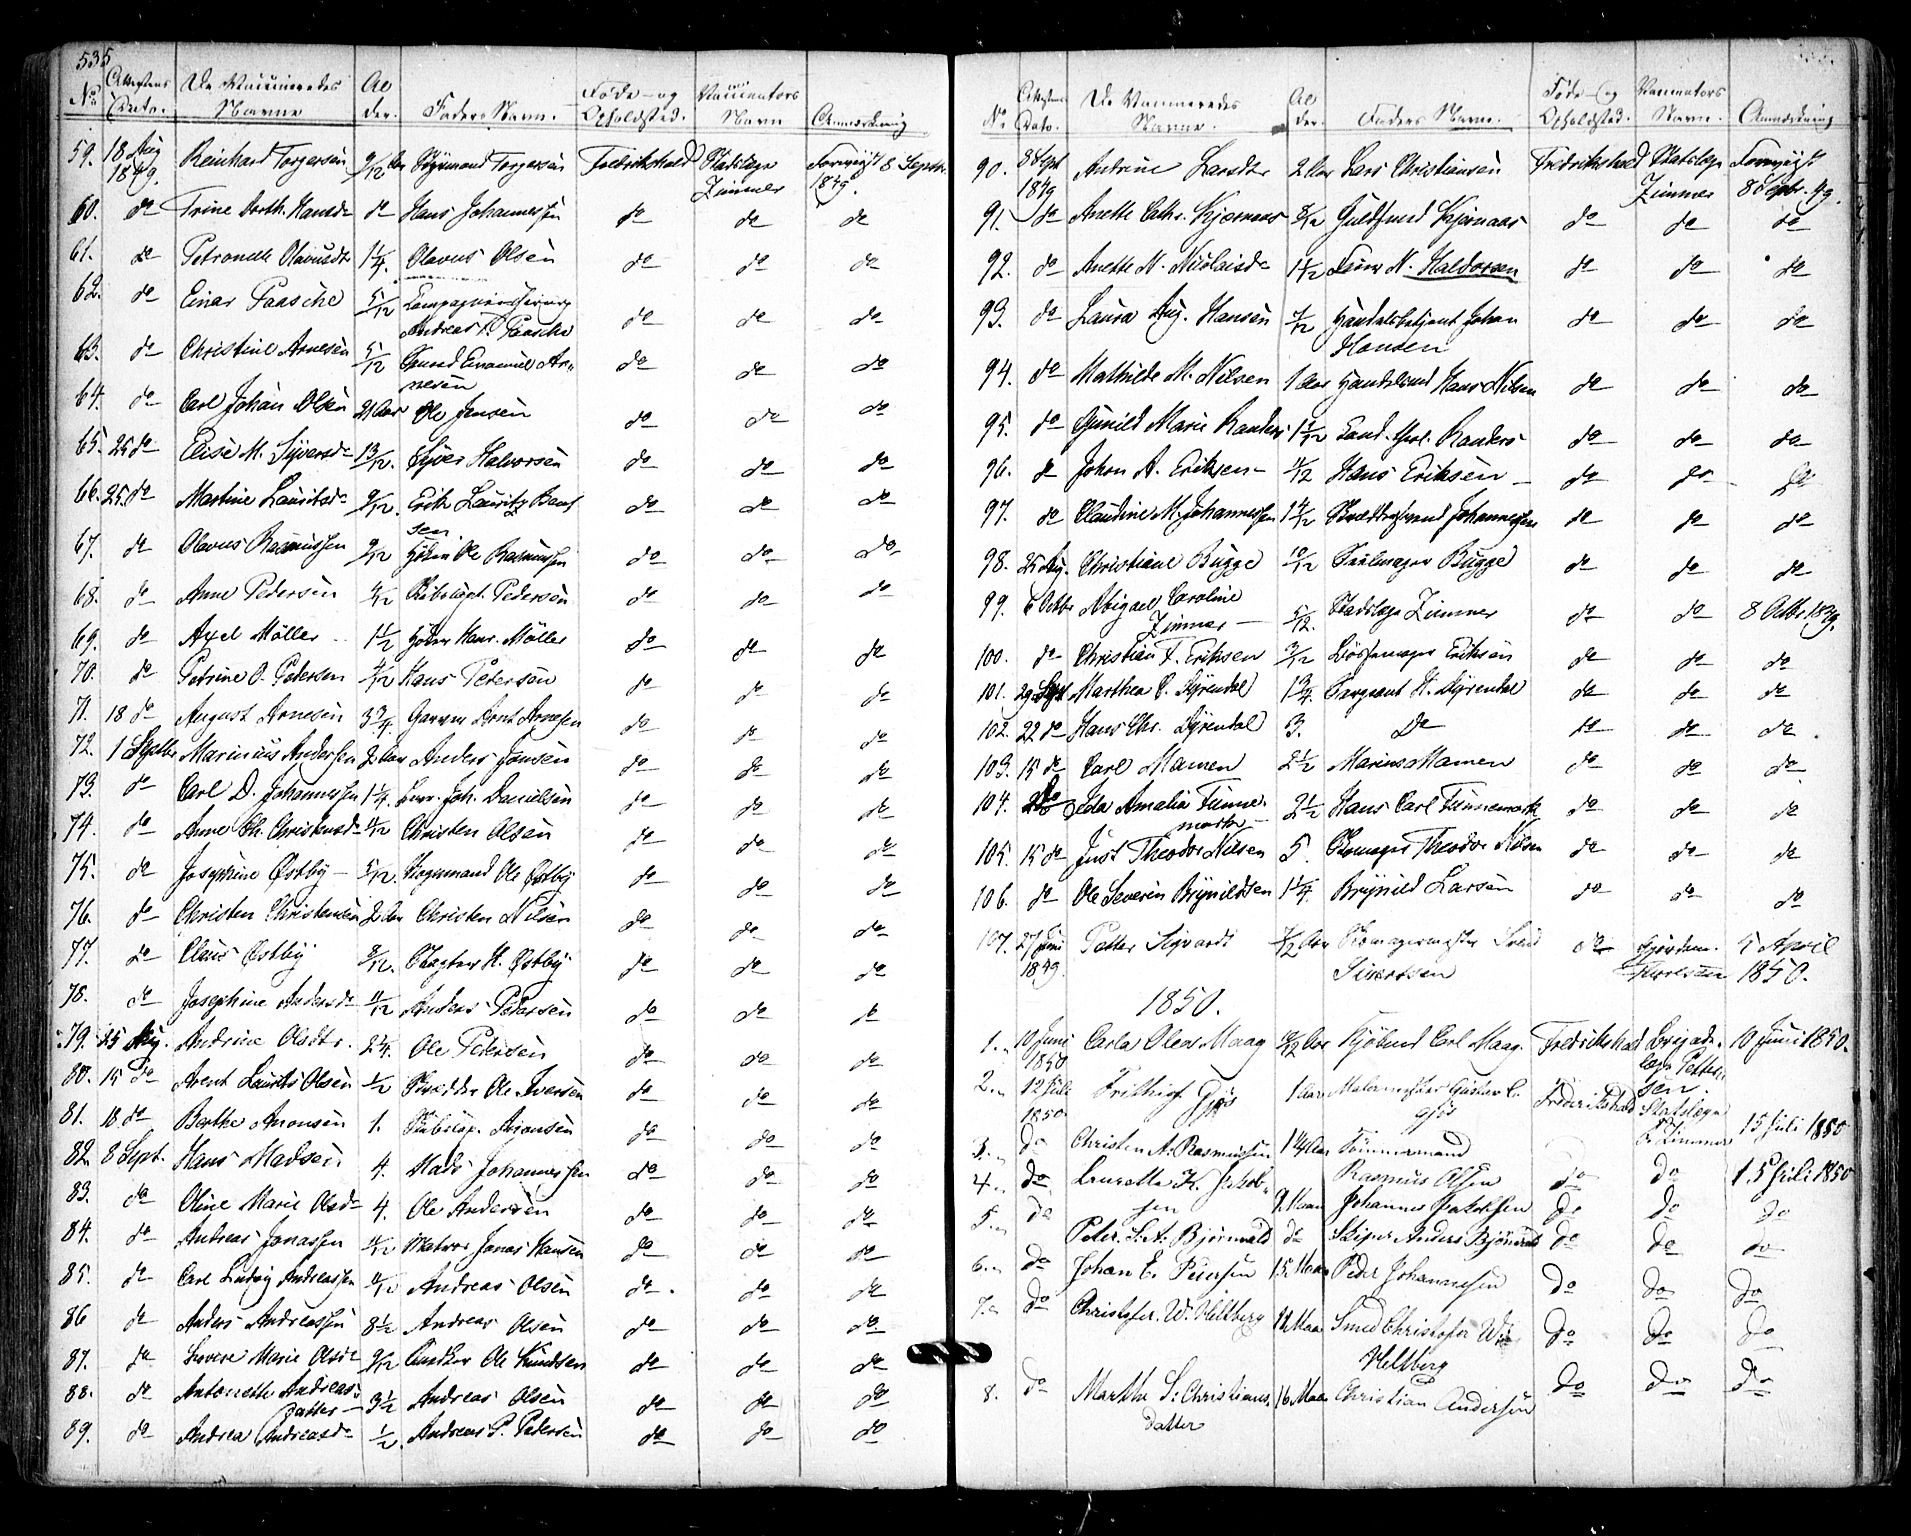 535
No Attestens Dato. De Vaccineredes Navne Al der. Faders Navn. Føde- og Opholdsted. Vaccinators Navn Anmærkning
59. 18 Aug 1849. Reinhard Torgersen 9/12 Aar Styrmand Torgersen Fredrikshald Stadslæge Zimmer Foreviist 8 Septbr. 1849.
60. do Trine Dorth. Hansdr do Hans Johannessen do do do
61. do Petronelle Olavusdr 1 1/4. Olavus Olsen do do do
62. do Einar Paasche 5/12 Compagniechirurg Andreas T. Paasche do do do
63. do Christine Arnesen 5/12 Emanuel Arnesen do do do
64. do Carl Johan Olsen 21 Aar Ole Jensen do do do
65. 25 do Elise M. Syversdr 13/12. Syver Halvorsen do do do
66. 25. do Martine Lauritsdr 9/12. Erik Lauritz Bentsen do do do
67. do Olavus Rasmussen 9/12 Høker Ole Rasmussen do do do
68. do Anne Pedersen Pedersen do do do
69. do Axel Möller 1 1/2 Høker Hans Möller do do do
70. do Petrine O. Petersen Hans Petersen do do do
71. 18 do August Arnesen 3 3/4 Garver Arnt Arnesen do do do
72. 1 Septbr Marinius Andersen 2 Aar Anders Jensen do do do
73. do Carl D. Johannessen 1 1/4. Joh. Danielsen do do do
74. do Anne Ch. Christensdr Christen Olsen do do do
75. do Josephine Østby 5/12. Ole Østby do do do
76. do Christen Christensen 2 Aar Christen Nilsen do do do
77. do Claus Østby 8/12. Slagter H. Østby do do do
78. do Josephine Andersdr 11/12 Anders Petersen do do do
79. 25 Aug. Andrine Olsdtr. 2 1/4. Ole Petersen do do do
80. 15 do Arent Laurits Olsen 1/2 Skrædder Ole Iversen do do do
81. 18. do Berthe Aronsen 1. Aronsen do do do
82. 8 Sept. Hans Madsen 4. Mads Johannessen do do do
83. do Oline Marie Olsdr 4. Ole Andersen do do do
84. do Andreas Jonassen 11/12 Matros Jonas Hansen do do do
85. do Carl Ludvig Andreassen 11/12 Andreas Olsen do do do
86 do Anders Andreassen 8 1/2 Andreas Olsen do do do
87. do Severe Marie Olsdr 9/12 Ole Knudsen do do do
88. do Antonette Andreasdatter 3 1/2 Andreas Olsen do do do
89. do Andrea Andreasdr 1/2. Andreas P. Pedersen do do do
No Attestens Dato. De Vaccineredes Navne. Al der. Faders Navne. Føde- og Opholdsted. Vaccinators Navn. Anmærkning
90. 8 Sept 1849 Andrine Larsdtr 2 Aar Lars Christiansen Fredrikshald Stadslæge Zimmer Foreviist 8 Septbr. 49.
91. do Anette Cathr. Kjærnaas Guldsmed Kjærnaas do do do
92. do Anette N. Nicolaisdr 1 1/2 N. Haldorsen do do do
93. do Laura Aug. Hansen Handelsbetjent Johan Hansen do do do
94. do Mathilde M. Nilsen 1 Aar Handelsmd Hans Nilsen do do do
95. do Gunild Marie Randers Cand. theol. Randers do do do
96. do Johan A. Eriksen Hans Eriksen do do do
97. do Claudine M. Johannessen Johannessen do do do
98. 25 Aug. Christiane Bugge 10/12 Seilmager Bugge do do do
99. 6 Octbr Abigael Caroline Zimmer 5/12. Stadslæge Zimmer do do 8 Octbr. 1849.
100. do Christian F. Eriksen Bøssemager Eriksen do do do
101. 29 Sept Marthea C. Dyrendal 1 3/4. Sergeant H. Dyrendal do do do
102. 22 do Hans Chr. Dyrendal 3. Do do do do
103. 15 do Carl Mamen 2 1/2 Marius Mamen do do do
104. do Ida Amalia Funnemark 2 1/2 Hans Carl Funnemark do do do
105. 15 do Just Theodor Nilsen 5. Skomager Theodor Nilsen do do do
106. do Ole Severin Brynildsen 1 1/4. Brynild Larsen do do do
107. 27 Juni 1849. Petter Sigvardt Aar Skomagermester Svend Sivertsen do Gjordem. 5 April 1850.
1850.
1. 10 Juni 1850 Carla Olea Maag Aar Kjøbmd Carl Maag Fredrikshald Brigadelæge Pettersen. 10 Juni 1850.
2. 12 Juli 1850 Frithiof Gjös 1 Aar Malermester Gustav C. Gjös Frederikshald Statslæge Zimmer 15 Juli 1850
3. do Christen A. Rasmussen Tömmermand Rasmus Olsen do do 15 Juli 1850
4. do Lauretta K. Jakobsen 9. Maan Johannes Jakobsen do do do
5. do Peter. S. A. Björnvald do Skiper Anders Björnvald do do do
6. do Johan E. Petersen 15. Maan Peder Johannesen do do do
7. do Christofer. W. Heltberg 14 Maan Smed Christofer Heltberg do do do
8. do Marthe S. Christiansdatter 16 Maan Christian Andersen do do do